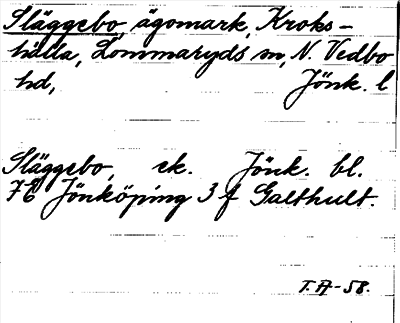 Släggebo, ägomark, Kroks-
hälla, Lommaryds sn, N. Vedbo
hd, Jönk. l
Släggebo, ek. Jönk. bl.
7E Jönköping 3 f Galthult.
T.A-58.